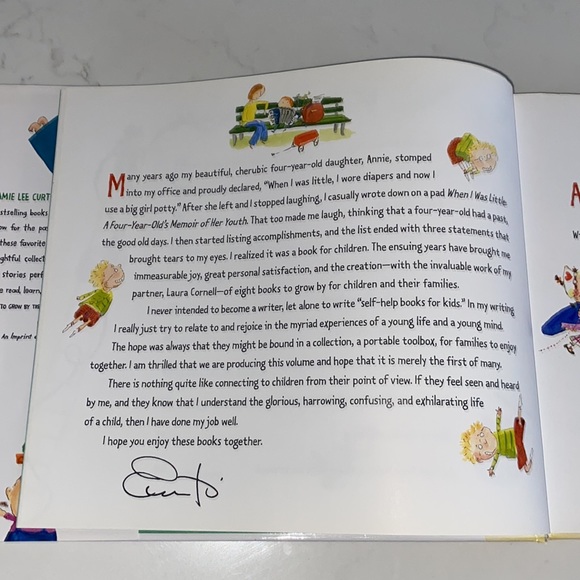 Many years ago my beautiful, cherubic four-year-old daughter, Annie, stomped
into my office and proudly declared, "When I was little, I wore diapers and now I
use a big girl potty." After she left and I stopped laughing, I casually wrote down on a pad When I Was Little:
A Four-Year-Old's Memoir of Her Youth. That too made me laugh, thinking that a four-year-old had a past,
the good old days. I then started listing accomplishments, and the list ended with three statements that
brought tears to my eyes. I realized it was a book for children. The ensuing years have brought me
immeasurable joy, great personal satisfaction, and the creation—with the invaluable work of my
partner, Laura Cornell—of eight books to grow by for children and their families.
I never intended to become a writer, let alone to write "self-help books for kids." In my writing
I really just try to relate to and rejoice in the myriad experiences of a young life and a young mind.
The hope was always that they might be bound in a collection, a portable toolbox, for families to enjoy
together. I am thrilled that we are producing this volume and hope that it is merely the first of many.
There is nothing quite like connecting to children from their point of view. If they feel seen and heard
by me, and they know that I understand the glorious, harrowing, confusing, and exhilarating life
of a child, then I have done my job well.
I hope you enjoy these books together.
AMIE LEE CURT
stselling books
ow for the
these favorite
ghtful collect
stories perf
read, learn,
TO GROW BY
An Imprint